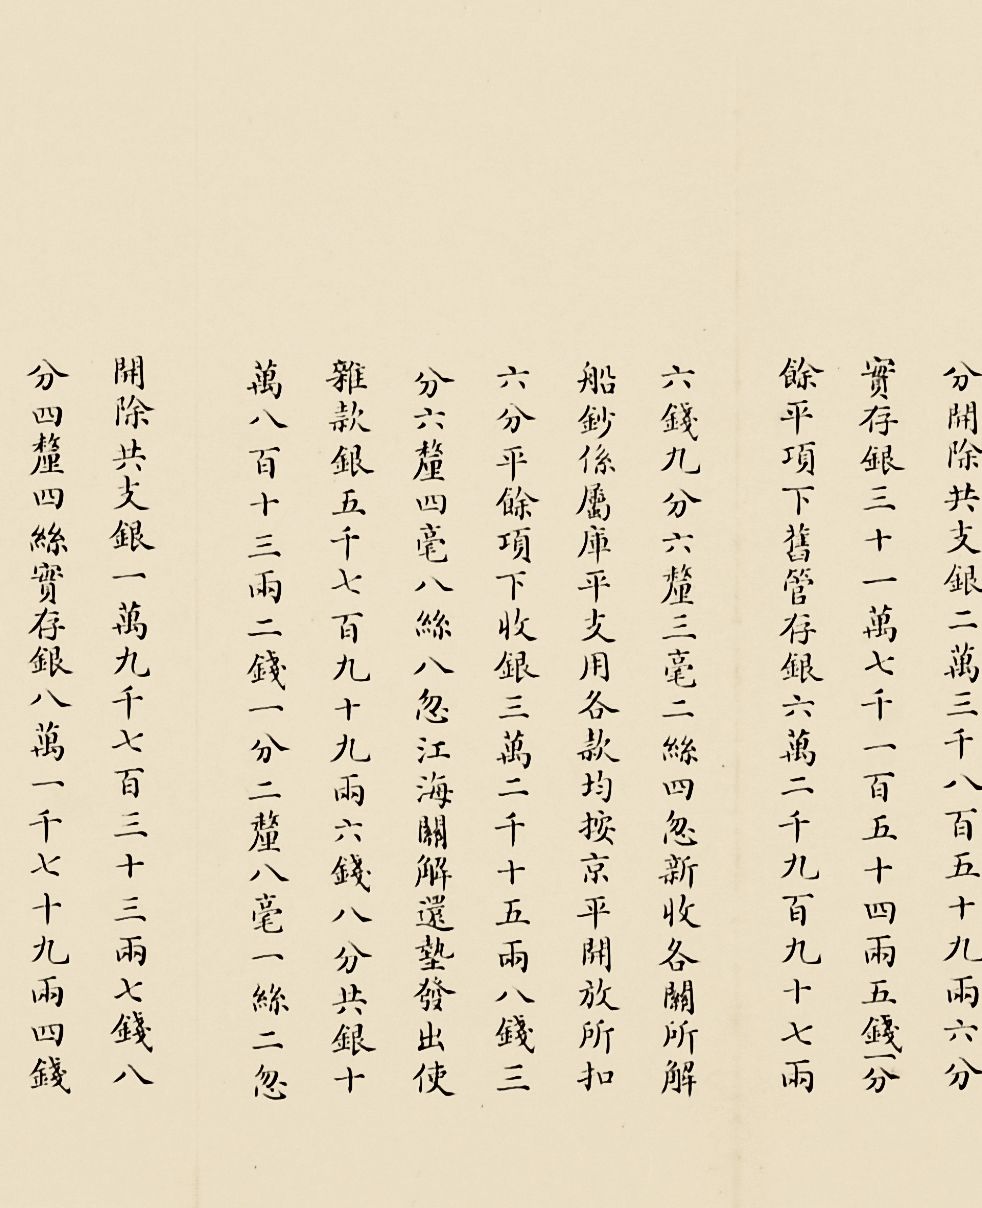 分開除共支銀二萬三千八百五十九兩六分
實存銀三十一萬七千一百五十四兩五錢一分
餘平項下舊管存銀六萬二千九百九十七兩
六錢九分六釐三毫二絲四忽新收各關所解
船鈔係屬庫平支用各款均按京平開放所扣
六分平餘項下收銀三萬二千十五兩八錢三
分六釐四毫八絲八忽江海關解還墊發出使
雜款銀五千七百九十九兩六錢八分共銀十
萬八百十三兩二錢一分二釐八毫一絲二忽
開除共支銀一萬九千七百三十三兩七錢八
分四釐四絲實存銀八萬一千七十九兩四錢